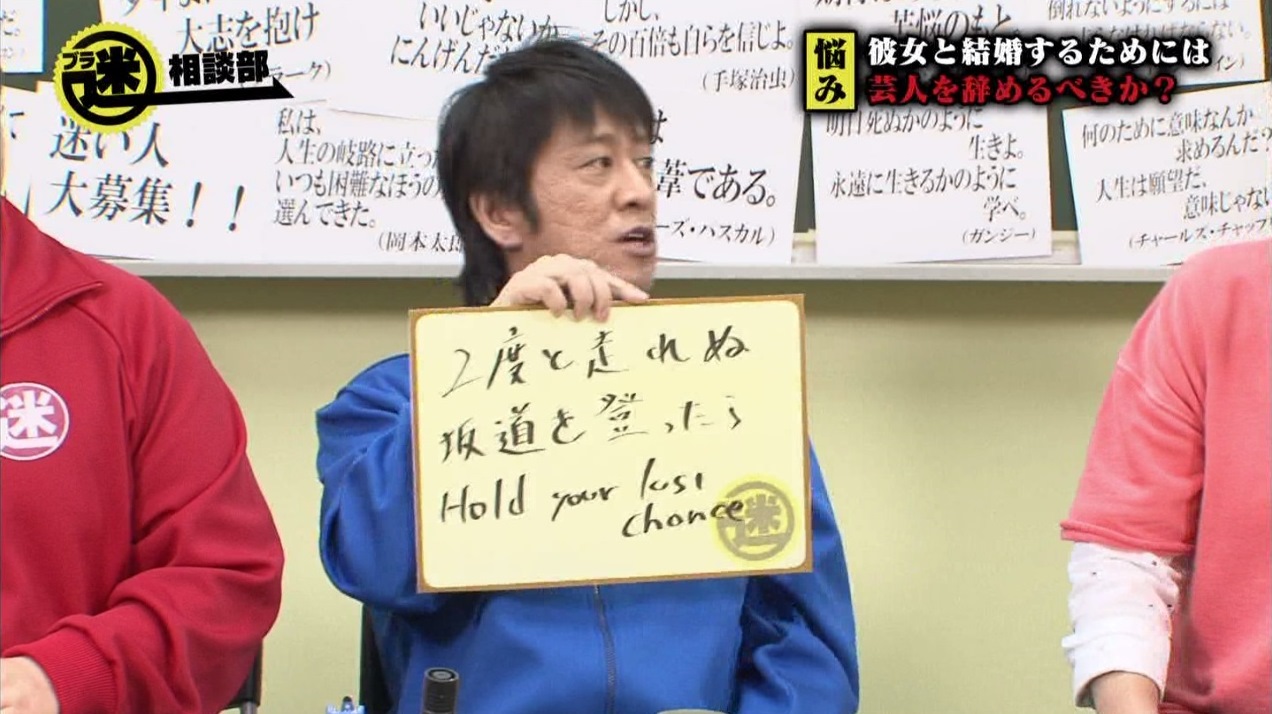 ブラ
迷
相談部
悩み
彼女と結婚するためには
芸人を辞めるべきか?
大志を抱け
ーク)
いいじゃないか
にんげんだ
しかし、
その百倍も自らを信じよ。
(手塚治虫)
苦悩のもと
倒れないようにするには
イン)
迷い人
大募集!!
私は、
人生の岐路に立っ
いつも困難なほうの
選んできた。
(岡本太郎
は
葦である。
ーズ・パスカル)
明日死ぬかのように
生きよ。
永遠に生きるかのように
学べ。
(ガンジー)
何のために意味なんか
求めるんだ?
人生は願望だ、
意味じゃない
(チャールズ・チャップ
2度と走れぬ
坂道を登ったら
Hold your last
chance
迷
迷